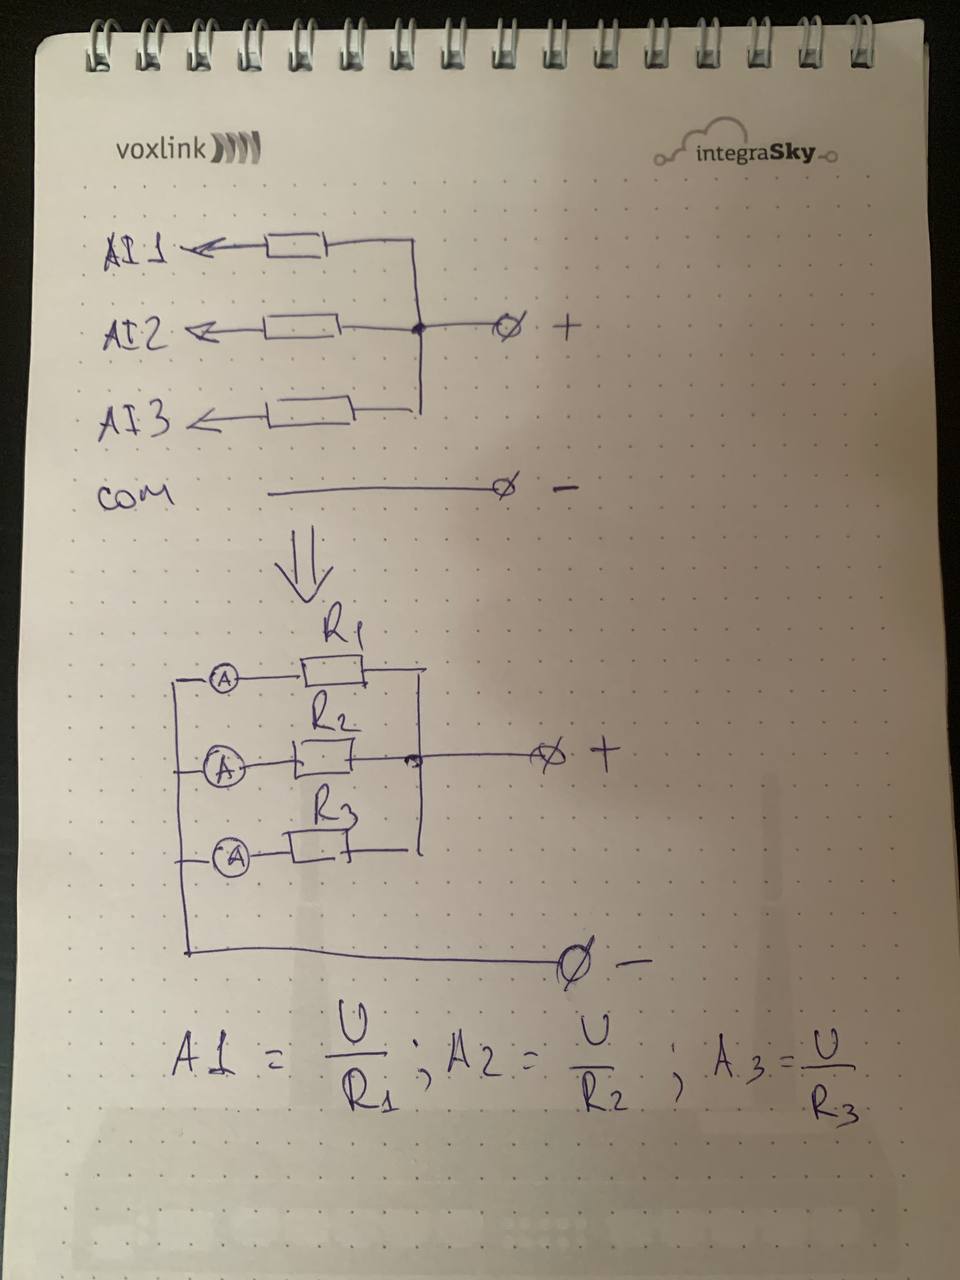 voxlink integraSky
AI1
AI2 +
AI3
COM −
R1
A
R2
A +
R3
A
−
A1 = U/R1 ; A2 = U/R2 ; A3 = U/R3